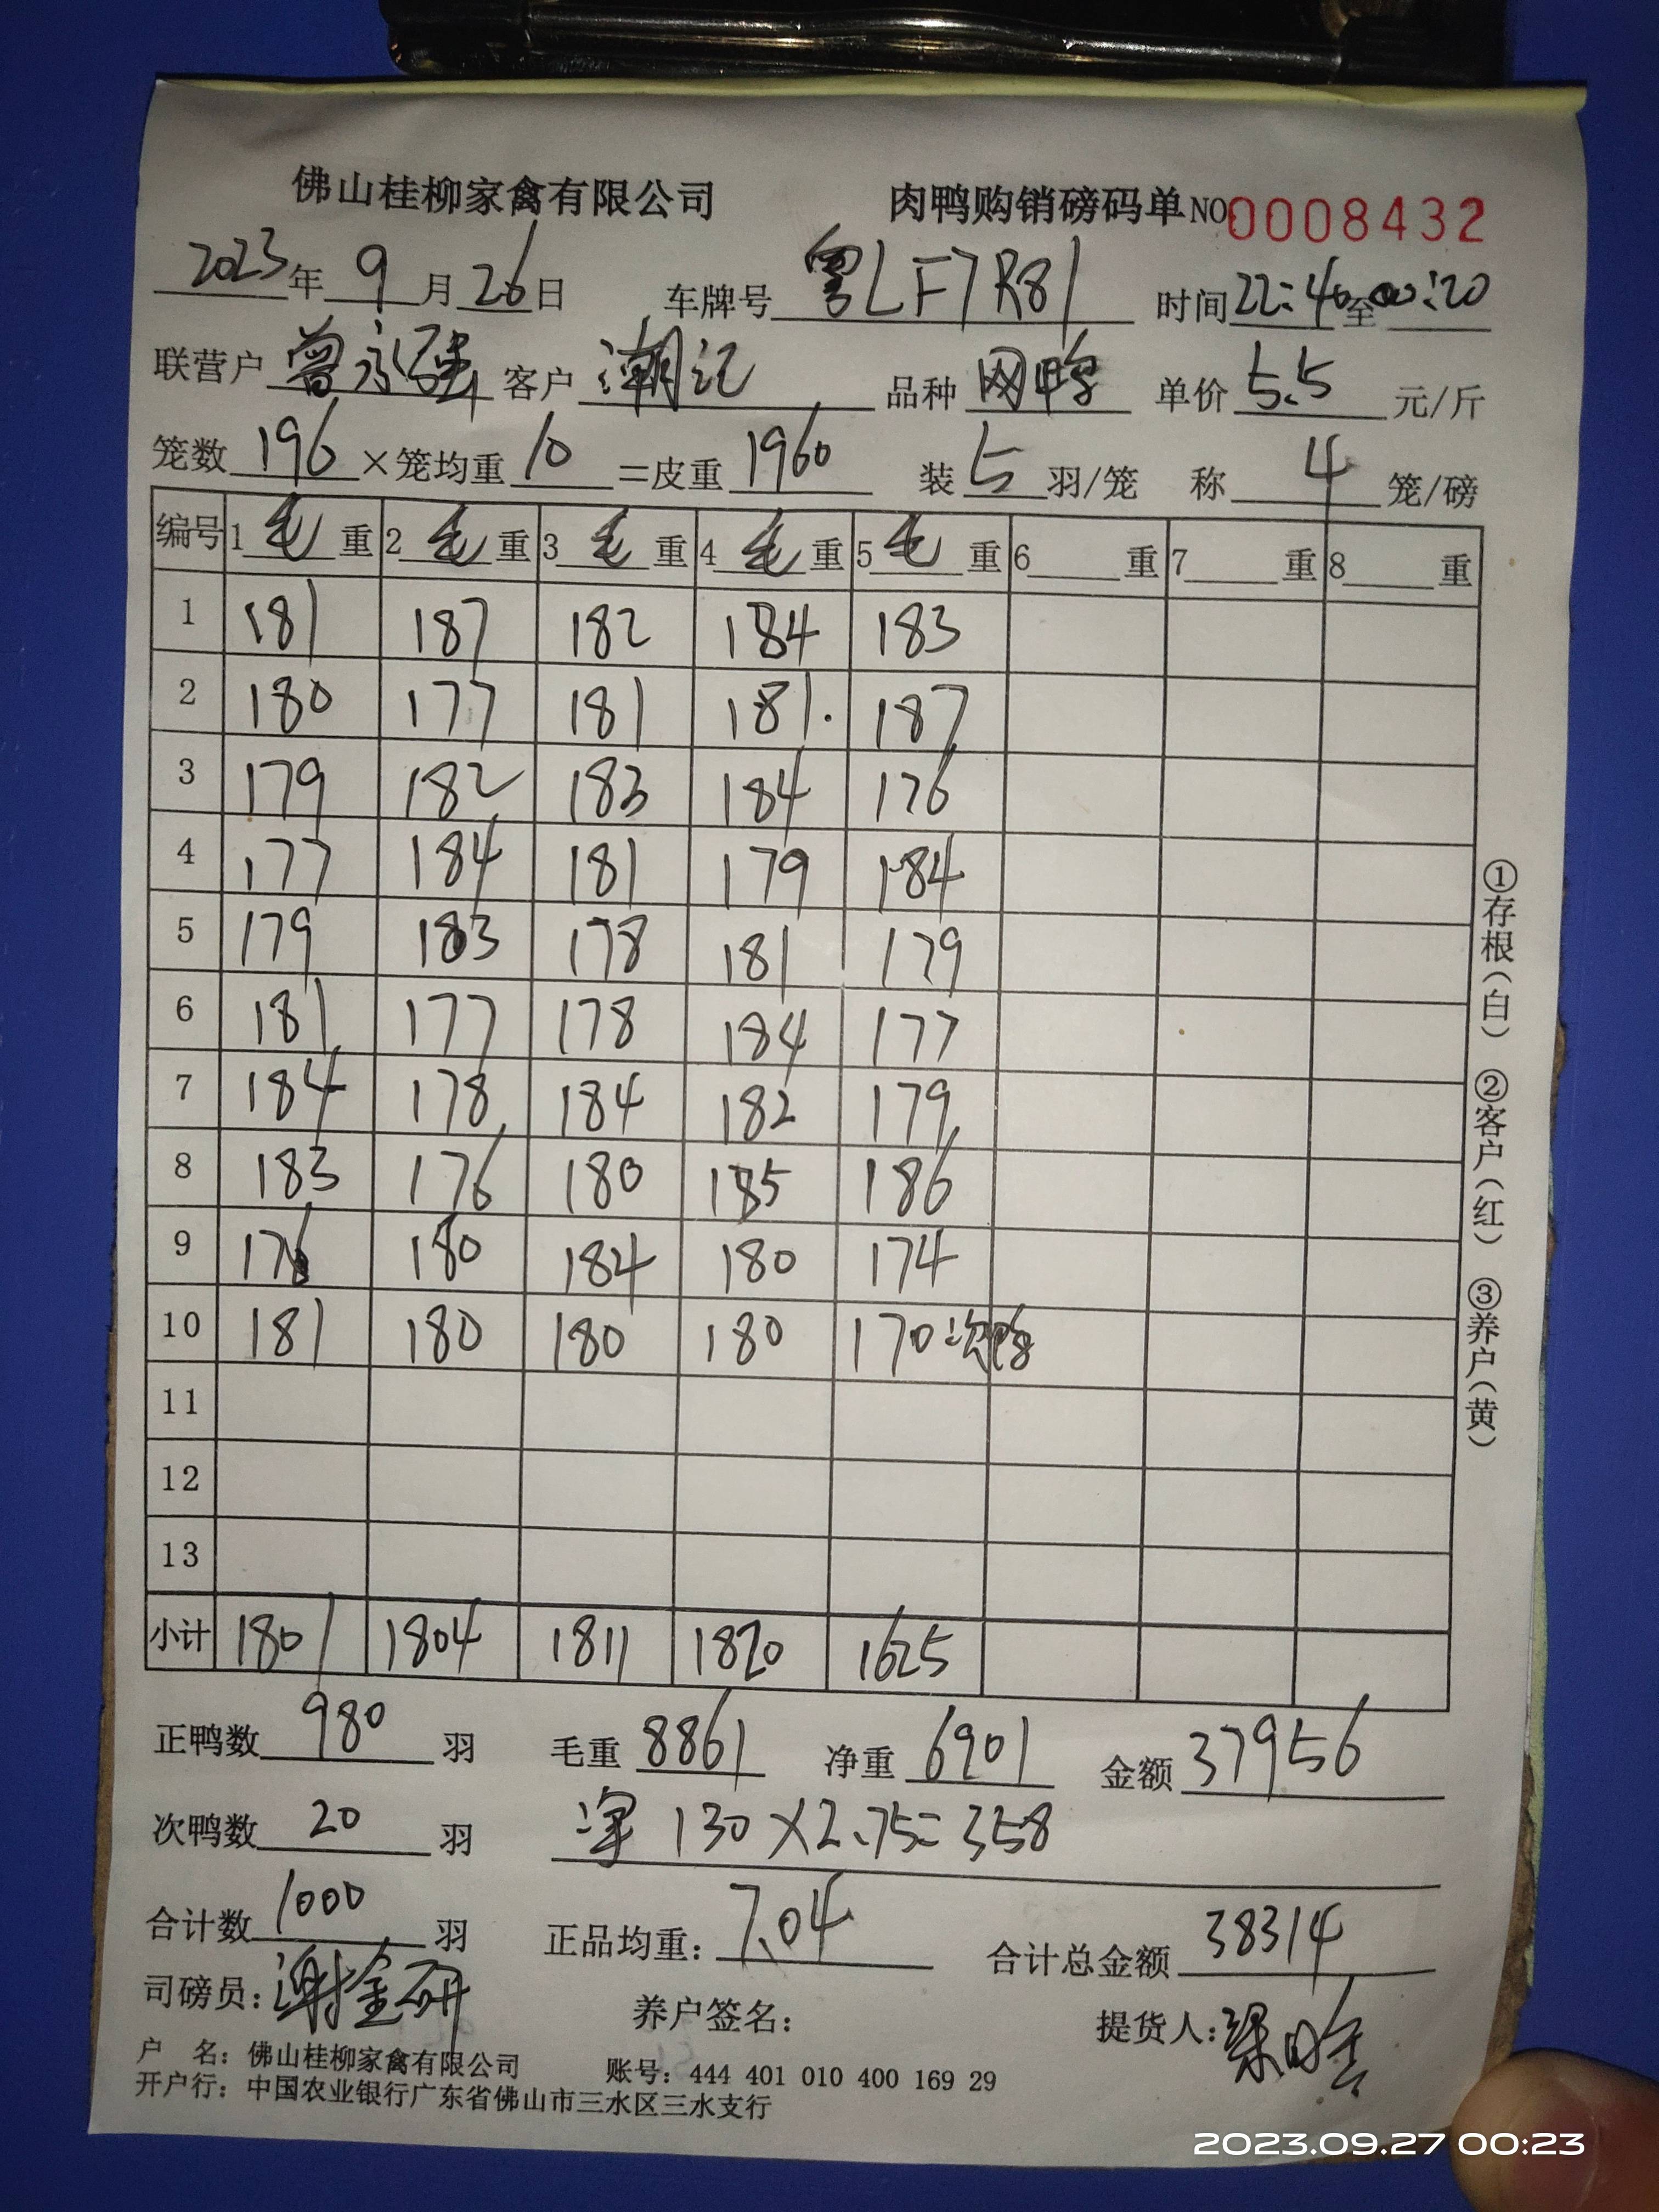 佛山桂柳家禽有限公司 肉鸭购销磅码单NO0008432
2023年9月26日 车牌号粤LF7R81 时间22:40至00:20
联营户曾永强 客户潮记 品种网鸭 单价5.5元/斤
笼数196×笼均重10=皮重1960 装5羽/笼 称4笼/磅
编号 1毛重 2毛重 3毛重 4毛重 5毛重 6重 7重 8重
1 181 187 182 184 183
2 180 177 181 181. 187
3 179 182 183 184 176
4 177 184 181 179 184
5 179 183 178 181 179
6 181 177 178 184 177
7 184 178 184 182 179
8 183 176 180 185 186
9 176 180 184 180 174
10 181 180 180 180 170次鸭
11
12
13
小计 1801 1804 1811 1820 1625
正鸭数980羽 毛重8861 净重6901 金额37956
次鸭数20羽 净 130×2.75=358
合计数1000羽 正品均重：7.04 合计总金额38314
司磅员：谢金研 养户签名： 提货人：
户 名：佛山桂柳家禽有限公司 账号：444 401 010 400 169 29
开户行：中国农业银行广东省佛山市三水区三水支行
①存根（白） ②客户（红） ③养户（黄）
2023.09.27 00:23